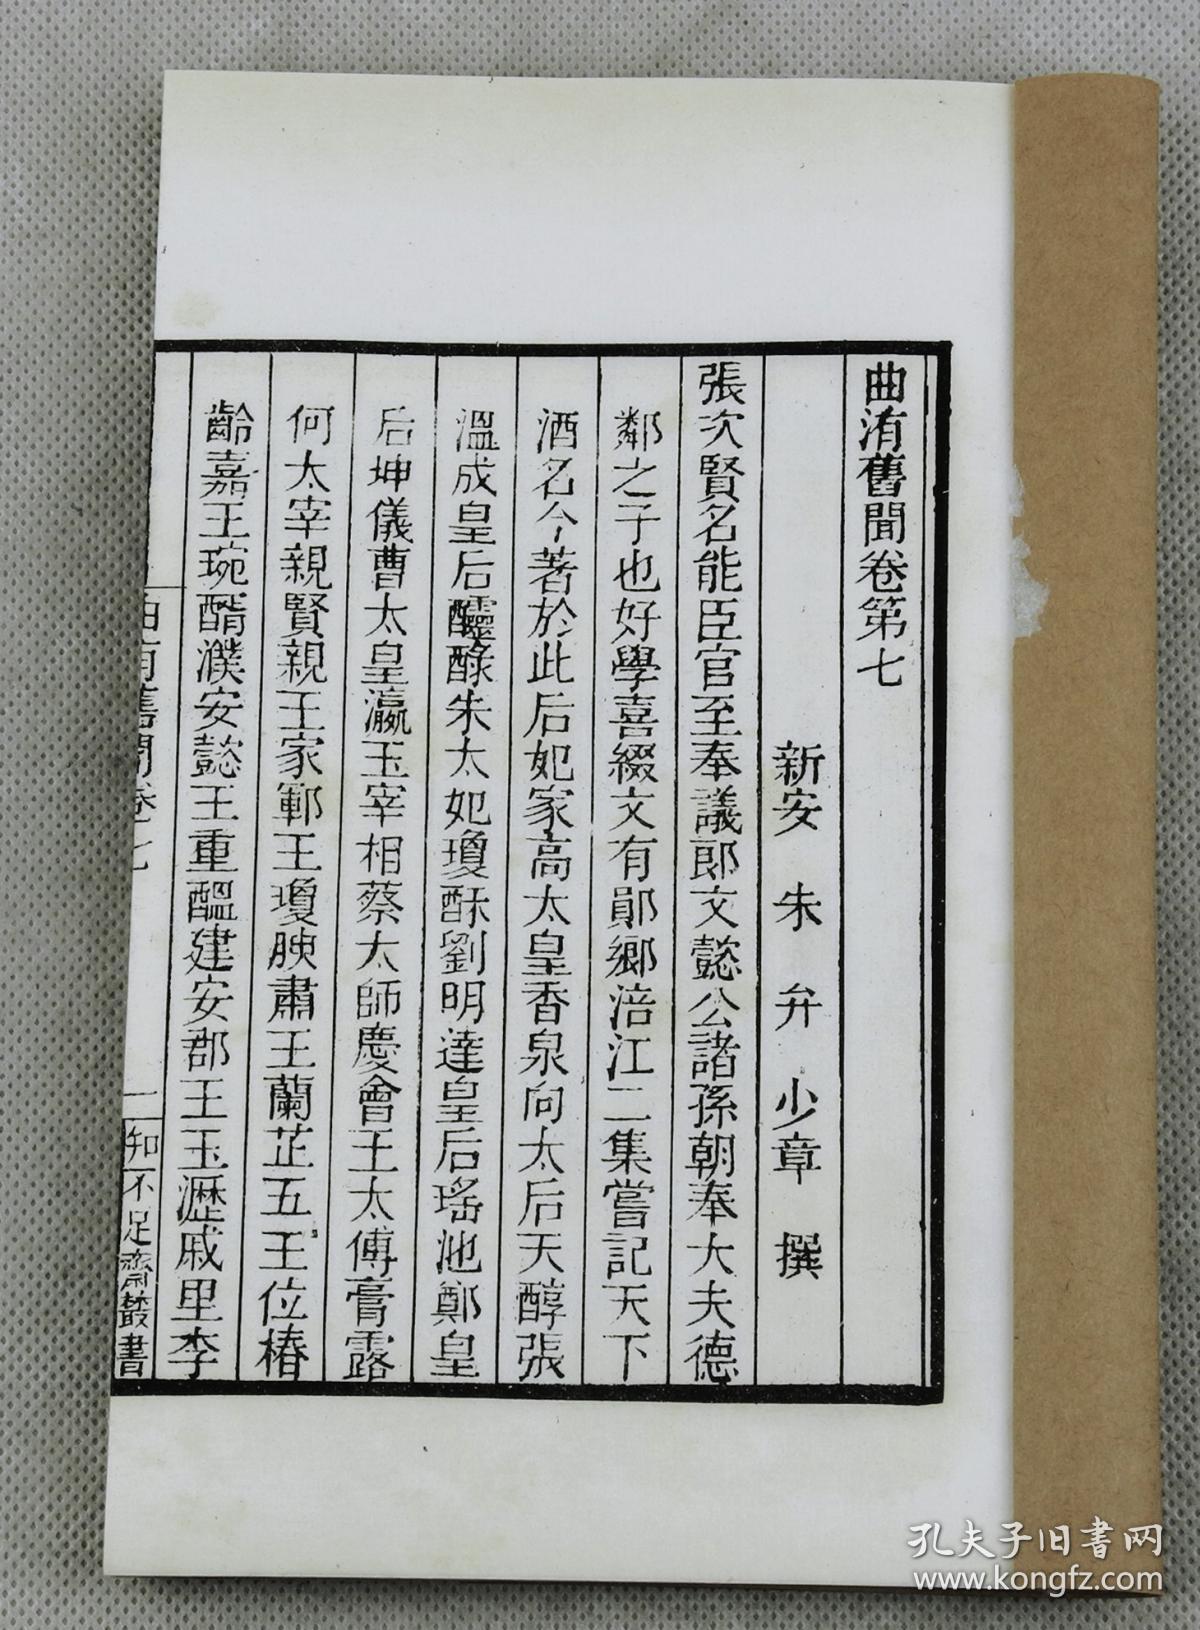 曲洧舊聞卷第七
新安朱弁少章撰
張次賢名能臣官至奉議郎文懿公諸孫朝奉大夫德
鄰之子也好學喜綴文有鄖鄉涪江二集嘗記天下
酒名今著於此后妃家高太皇香泉向太后天醇張
溫成皇后醽醁朱太妃瓊酥劉明達皇后瑤池鄭皇
后坤儀曹太皇瀛玉宰相蔡太師慶會王太傅膏露
何太宰親賢親王家鄆王瓊腴肅王蘭芷五王位椿
齡嘉王琬醑濮安懿王重醞建安郡王玉瀝戚里李
曲洧舊聞卷七
一
知不足齋叢書
孔夫子旧书网
www.kongfz.com